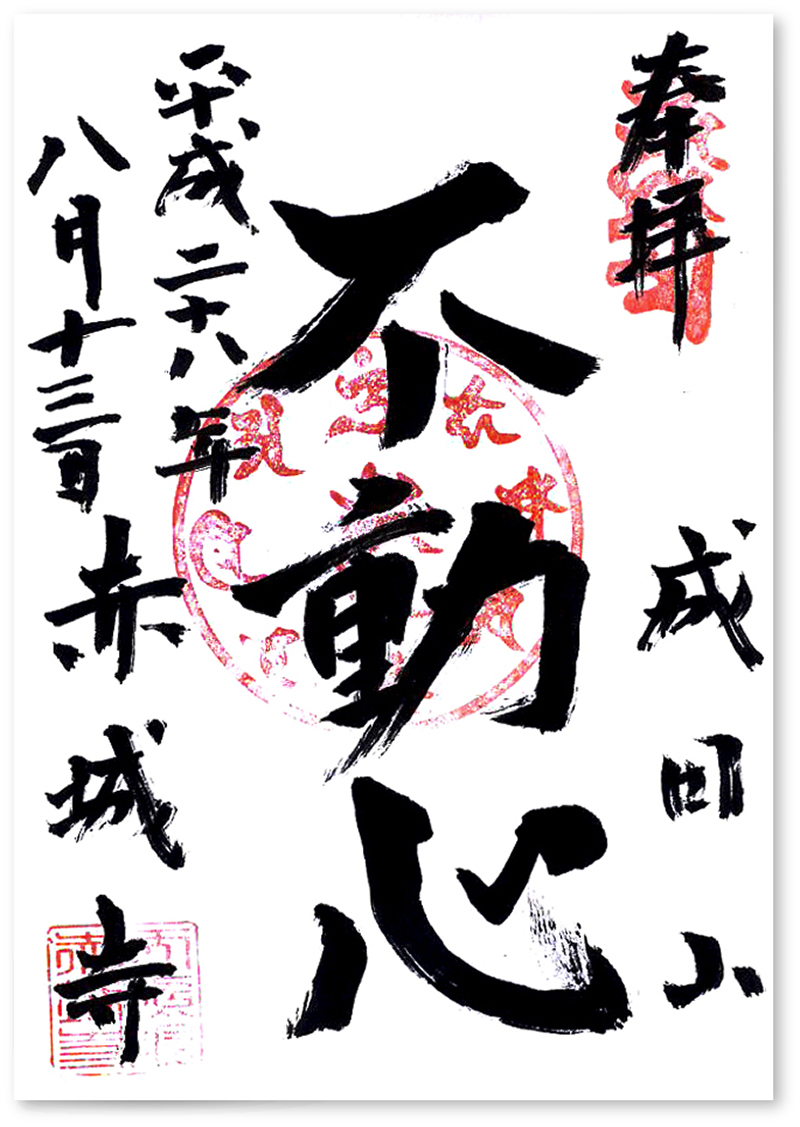 奉拝
成田山
不動心
平成二十八年
八月十三日
赤城寺